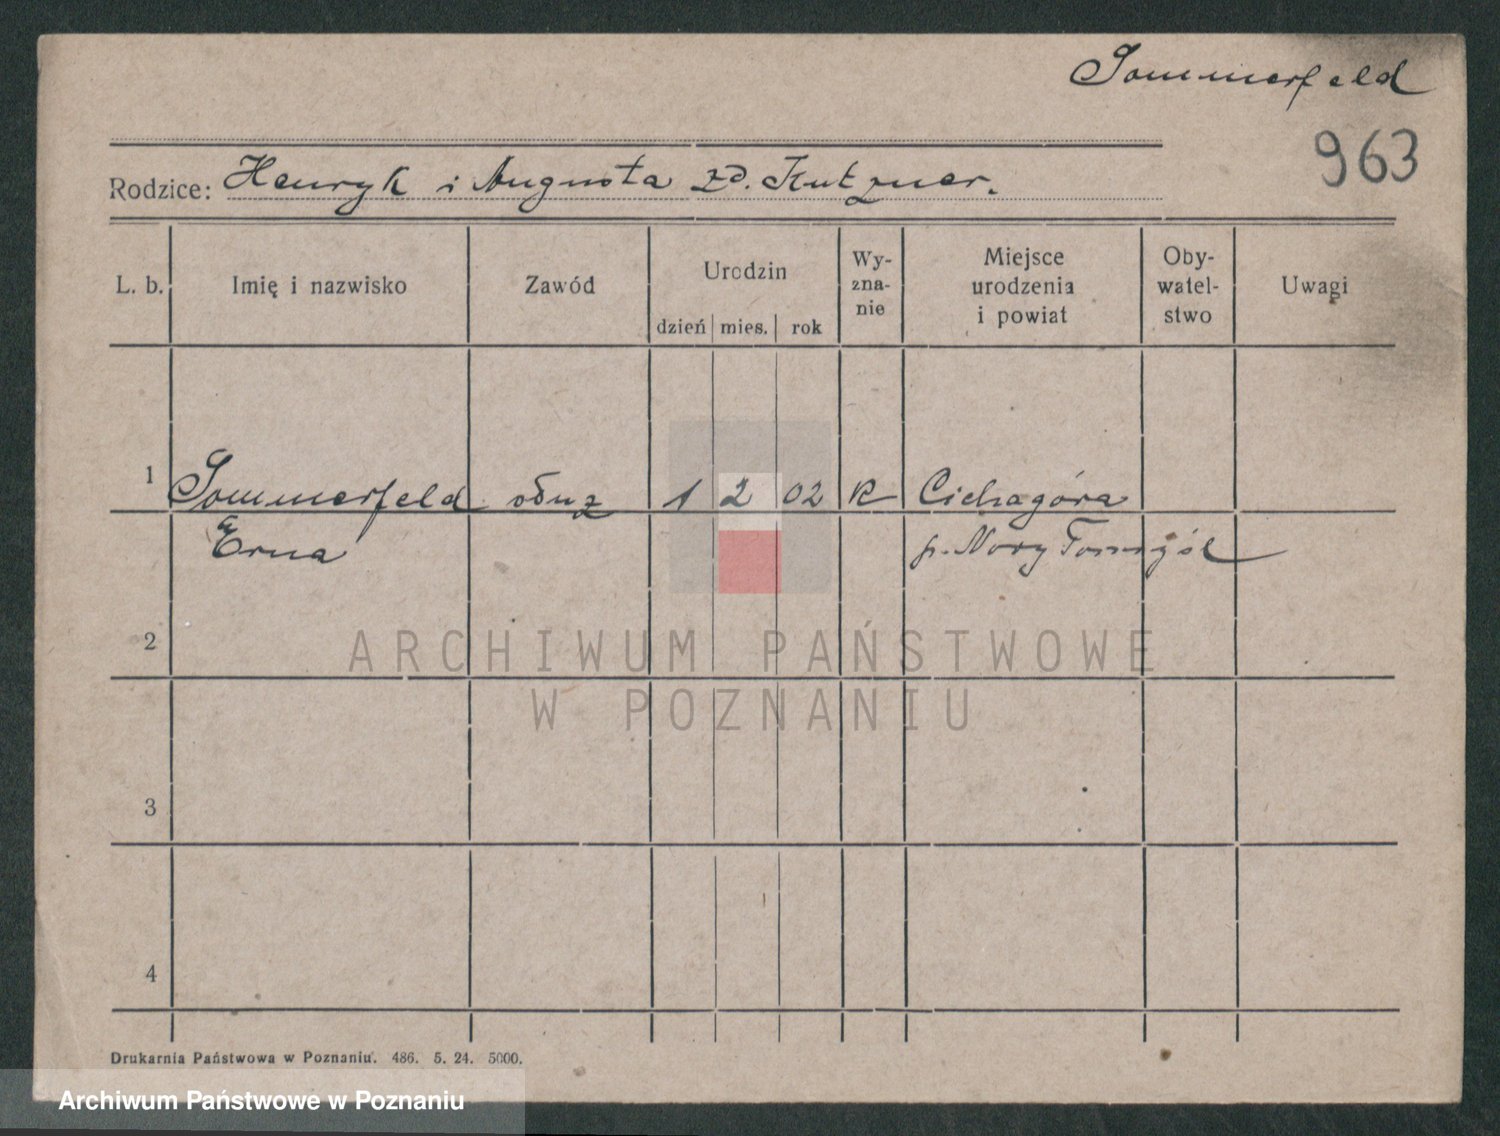 Sommerfeld
963
Rodzice: Henryk i Augusta zd. Kutzner.
L. b. Imię i nazwisko Zawód Urodzin dzień mies. rok Wy-zna-nie Miejsce urodzenia i powiat Oby-watel-stwo Uwagi
1 Sommerfeld 1 2 02 K Cichagóra
Erna p. Nowy Tomyśl
2
3
4
ARCHIWUM PAŃSTWOWE
W POZNANIU
Drukarnia Państwowa w Poznaniu. 486. 5. 24. 5000.
Archiwum Państwowe w Poznaniu